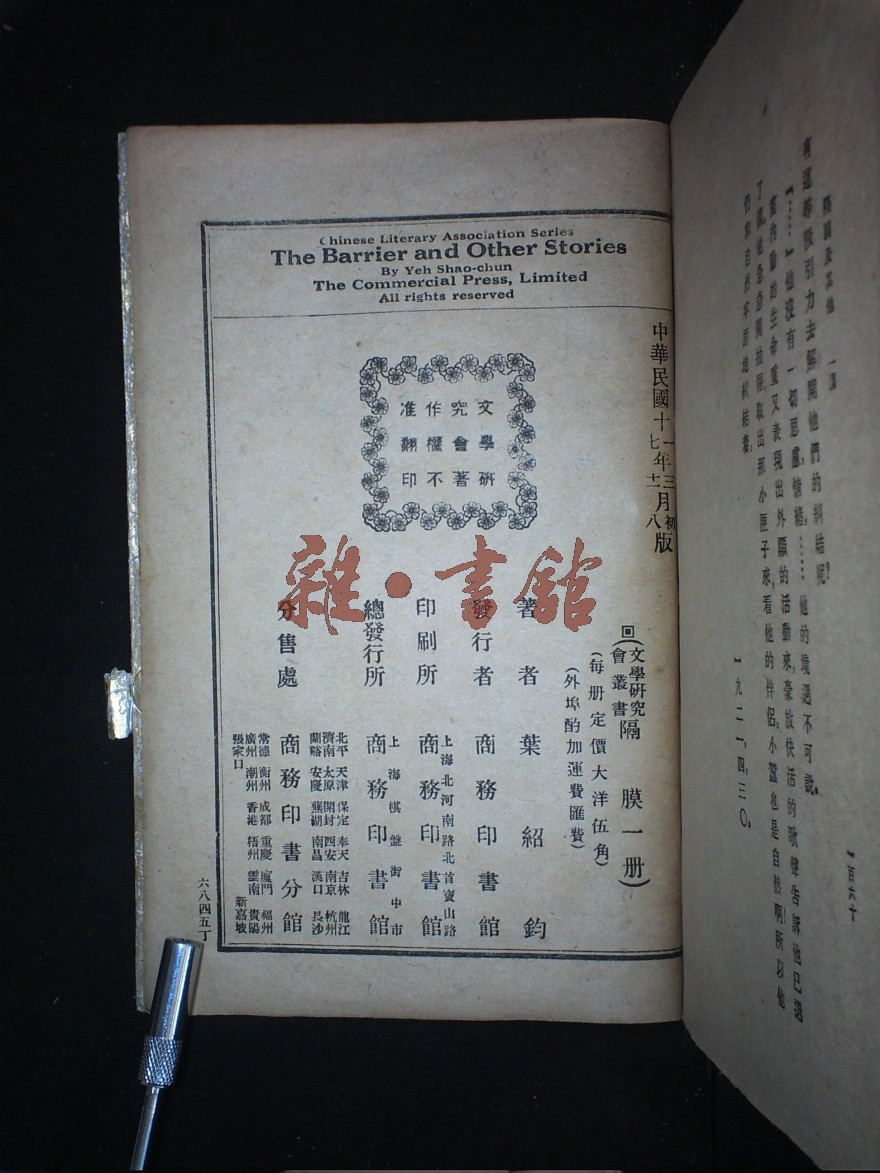 有這等吸引力去解開他們的糾結呢?
『……』他沒有一切思慮,情緒,……他的境遇不可說。
室內動的生命重又表現出外顯的活動來,豪放快活的歌聲告訴他已退
了課。他急急開抽屜,取出那小匣子來,看他的伴侶。小蠶也是自然啊!所以他
仍和自然牢固地糾結着。
一九二一,四,三〇。
一百六十
Chinese Literary Association Series
The Barrier and Other Stories
By Yeh Shao-chun
The Commercial Press, Limited
All rights reserved
中華民國十一年三月初版
十七年十二月八版
文學研
究會著
作權不
准翻印
回(文學研究會叢書隔膜一册)
(每册定價大洋伍角)
(外埠酌加運費匯費)
著者 葉紹鈞
發行者 商務印書館
印刷所 上海北河南路北首寶山路 商務印書館
總發行所 上海棋盤街中市 商務印書館
分售處 商務印書分館
北平 天津 保定 奉天 吉林 龍江
濟南 太原 開封 西安 南京 杭州
蘭谿 安慶 蕪湖 南昌 漢口 長沙
常德 衡州 成都 重慶 廈門 福州
廣州 潮州 香港 梧州 雲南 貴陽
張家口 新嘉坡
六八四五丁
雜·書館